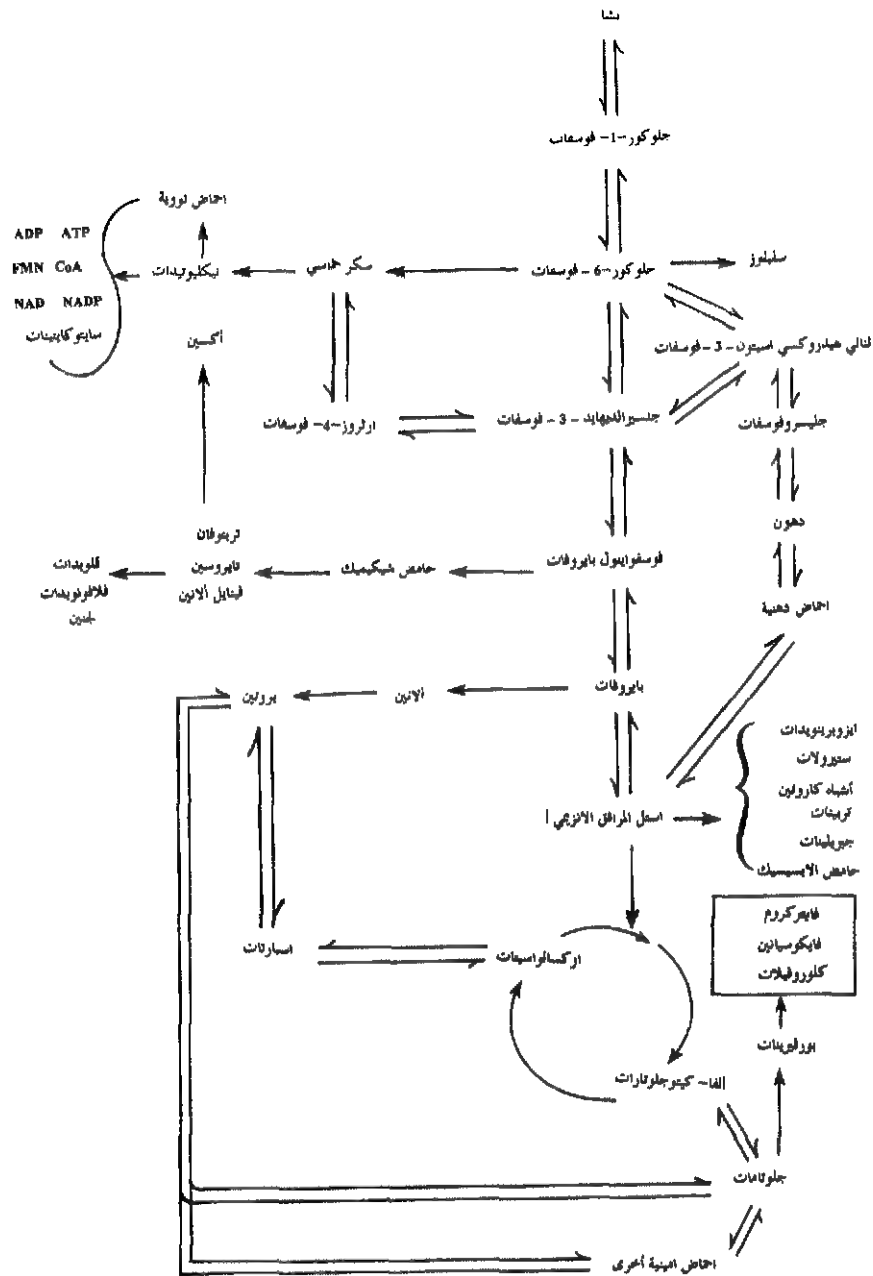 نشا
جلوكوز-1- فوسفات
احماض نووية
ADP ATP
FMN CoA
NAD NADP
سايتوكاينينات
نيكليوتيدات
سكر خماسي
جلوكوز-6- فوسفات
سليلوز
أكسين
ثنائي هيدروكسي اسيتون-3-فوسفات
ارثروز-4- فوسفات
جلسيرالديهايد-3- فوسفات
جليسروفوسفات
دهون
تربتوفان
تايروسين
فينايل ألانين
قلويدات
فلافونويدات
لجنين
حامض شيكيميك
فوسفواينول بايروفات
احماض دهنية
بروتين
ألانين
بايروفات
ايزوبرينويدات
ستيرولات
أشباه كاروتين
تربينات
جبريلينات
حامض الابسيسيك
استل المرافق الانزيمي أ
اسبارتات
اوكسالواسيتات
فايتوكروم
فايكوسيانين
كلوروفيلات
بورفيرينات
الفا-كيتوجلوتارات
جلوتامات
احماض امينية أخرى